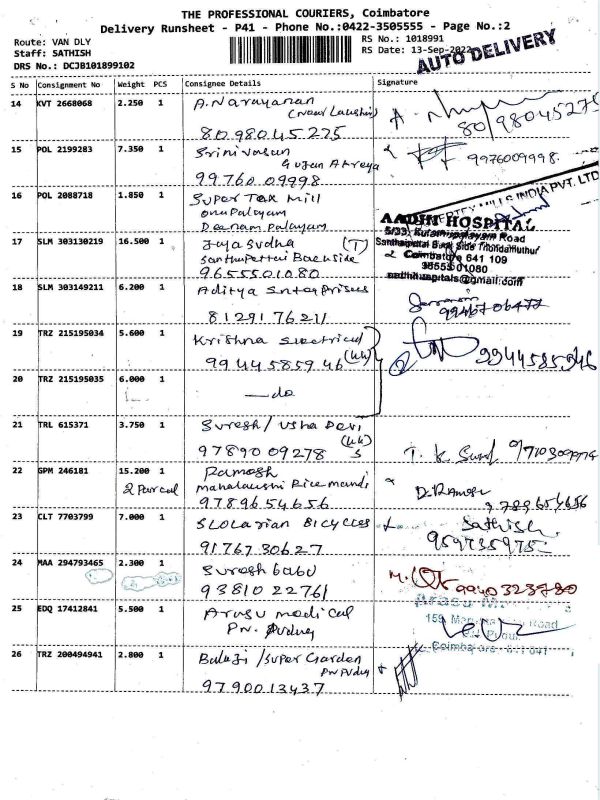 THE PROFESSIONAL COURIERS, Coimbatore
Delivery Runsheet - P41 - Phone No.:0422-3505555 - Page No.:2
Route: VAN DLY
Staff: SATHISH
DRS No.: DCJB101899102
RS No.: 1018991
RS Date: 13-Sep-2022
AUTO DELIVERY
S No Consignment No Weight PCS Consignee Details Signature
14 KVT 2668068 2.250 1 A. Narayanan
8098045275
80/98045275
15 POL 2199283 7.350 1 Srinivasan
Gujan Atreya
99760 09998
9976009998
16 POL 2088718 1.850 1 Super Tex Mill
Onupalayam
Deenampalayam
MILLS INDIA PVT. LTD
17 SLM 303130219 16.500 1 Jaya Sudha (T)
Santhupettai Backside
9655501080
AADHI HOSPITAL
5/33, Road
East Side Thondamuthur
Coimbatore 641 109
9655501080
18 SLM 303149211 6.200 1 Aditya Enterprises
8129176211
19 TRZ 215195034 5.600 1 Krishna Electrical
9944585946 (KK)
9944585946
20 TRZ 215195035 6.000 1 —do
21 TRL 615371 3.750 1 Suresh / Usha Devi
9789009278 (KK)
22 GPM 246181 15.200 1 Ramesh
2 Parcel Mahalakshmi Rice mandi
9789654656
D. Ramesh
9789654656
23 CLT 7703799 7.000 1 SLOLarian Bicycles
9176730627
Sathish
24 MAA 294793465 2.300 1 Suresh babu
9381022761
9940323780
25 EDQ 17412841 5.500 1 Arasu medical
PN. Pudur
Arasu M
159 Road
Pudur
Coimbatore 641041
26 TRZ 200494941 2.800 1 Balaji / Super Garden
PN Pudur
9790013437